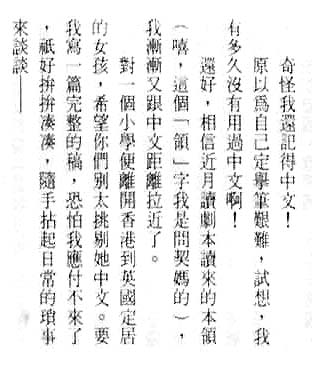 奇怪我還記得中文！
原以爲自己定擧筆艱難，試想，我
有多久沒有用過中文啊！
還好，相信近月讀劇本讀來的本領
（嘻，這個「領」字我是問契媽的），
我漸漸又跟中文距離拉近了。
對一個小學便離開香港到英國定居
的女孩，希望你們別太挑剔她中文。要
我寫一篇完整的稿，恐怕我應付不來了
，祇好拚拚凑凑，隨手拈起日常的瑣事
來談談——